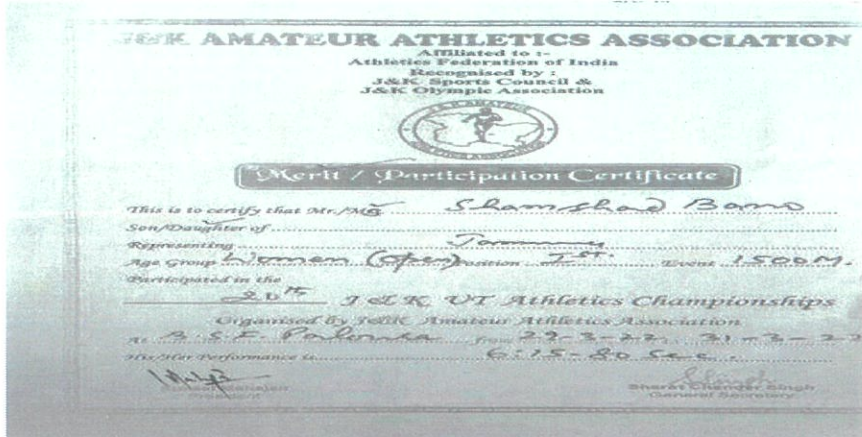 J&K AMATEUR ATHLETICS ASSOCIATION
Affiliated to :-
Athletics Federation of India
Recognised by :
J&K Sports Council &
J&K Olympic Association
Merit / Participation Certificate
This is to certify that Mr./Ms Shamshad Bano
Son/Daughter of
Representing Jammu
Age Group Women (Open) Position Ist. Event 1500M.
Participated in the
20th J & K UT Athletics Championships
Organised by J&K Amateur Athletics Association
At B.S.F. Paloura from 29-3-22 31-3-22
His/Her Performance is 6:15-80 Sec.
President
Bharat Chander Singh
General Secretary